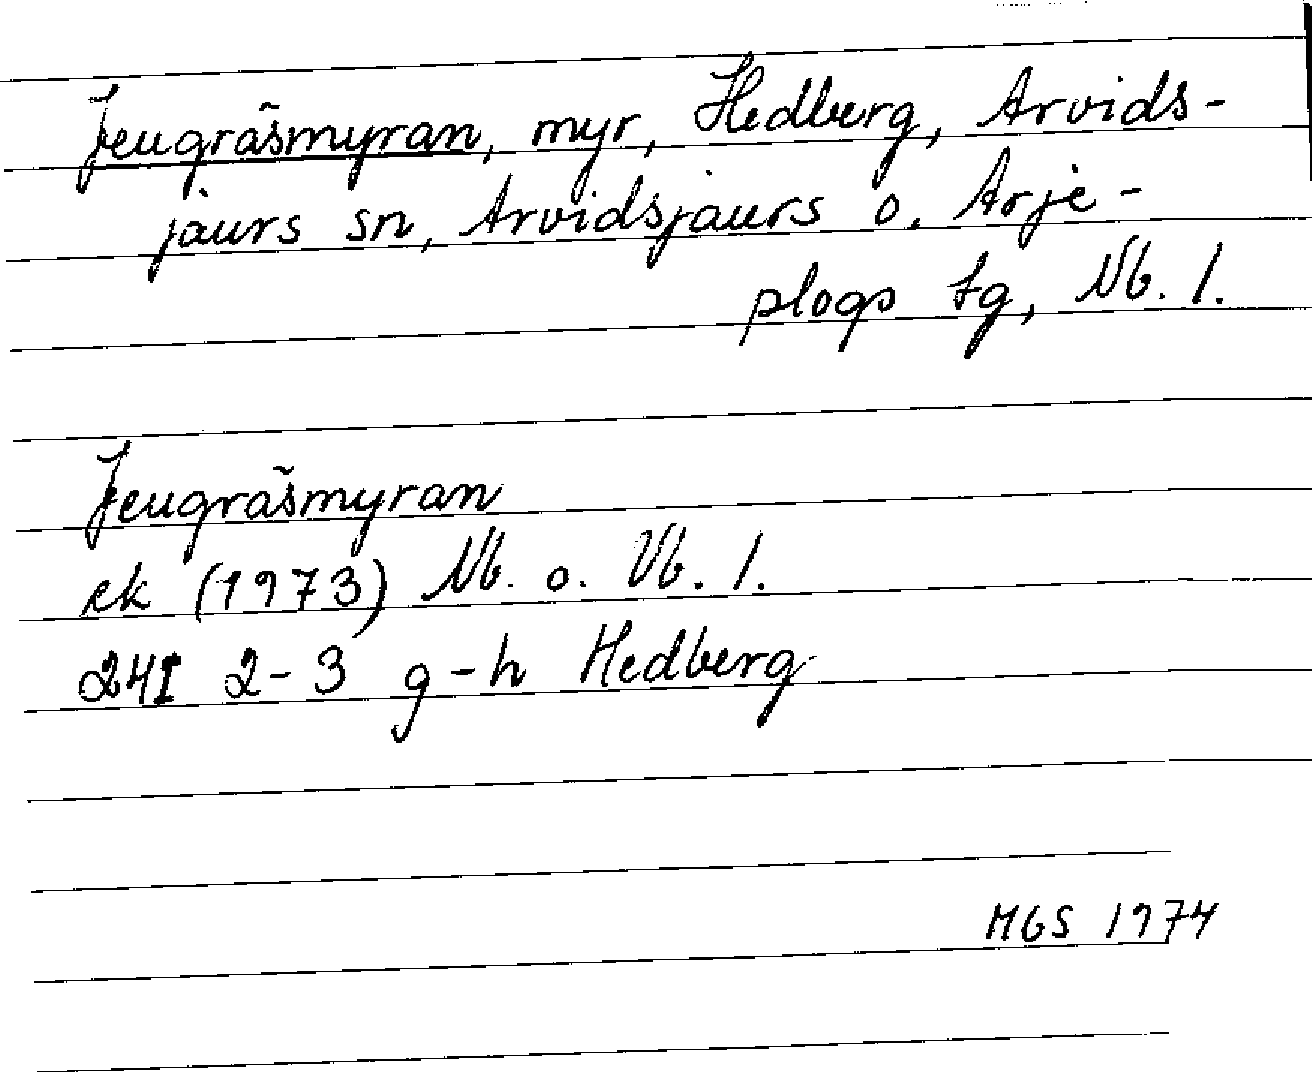 Jeugräsmyran, myr, Hedberg, Arvids-
jaurs sn, Arvidsjaurs o. Arje-
plogs tg, Nb. l.
Jeugräsmyran
ek (1973) Nb. o. Vb. l.
24I 2-3 g-h Hedberg
MGS 1974